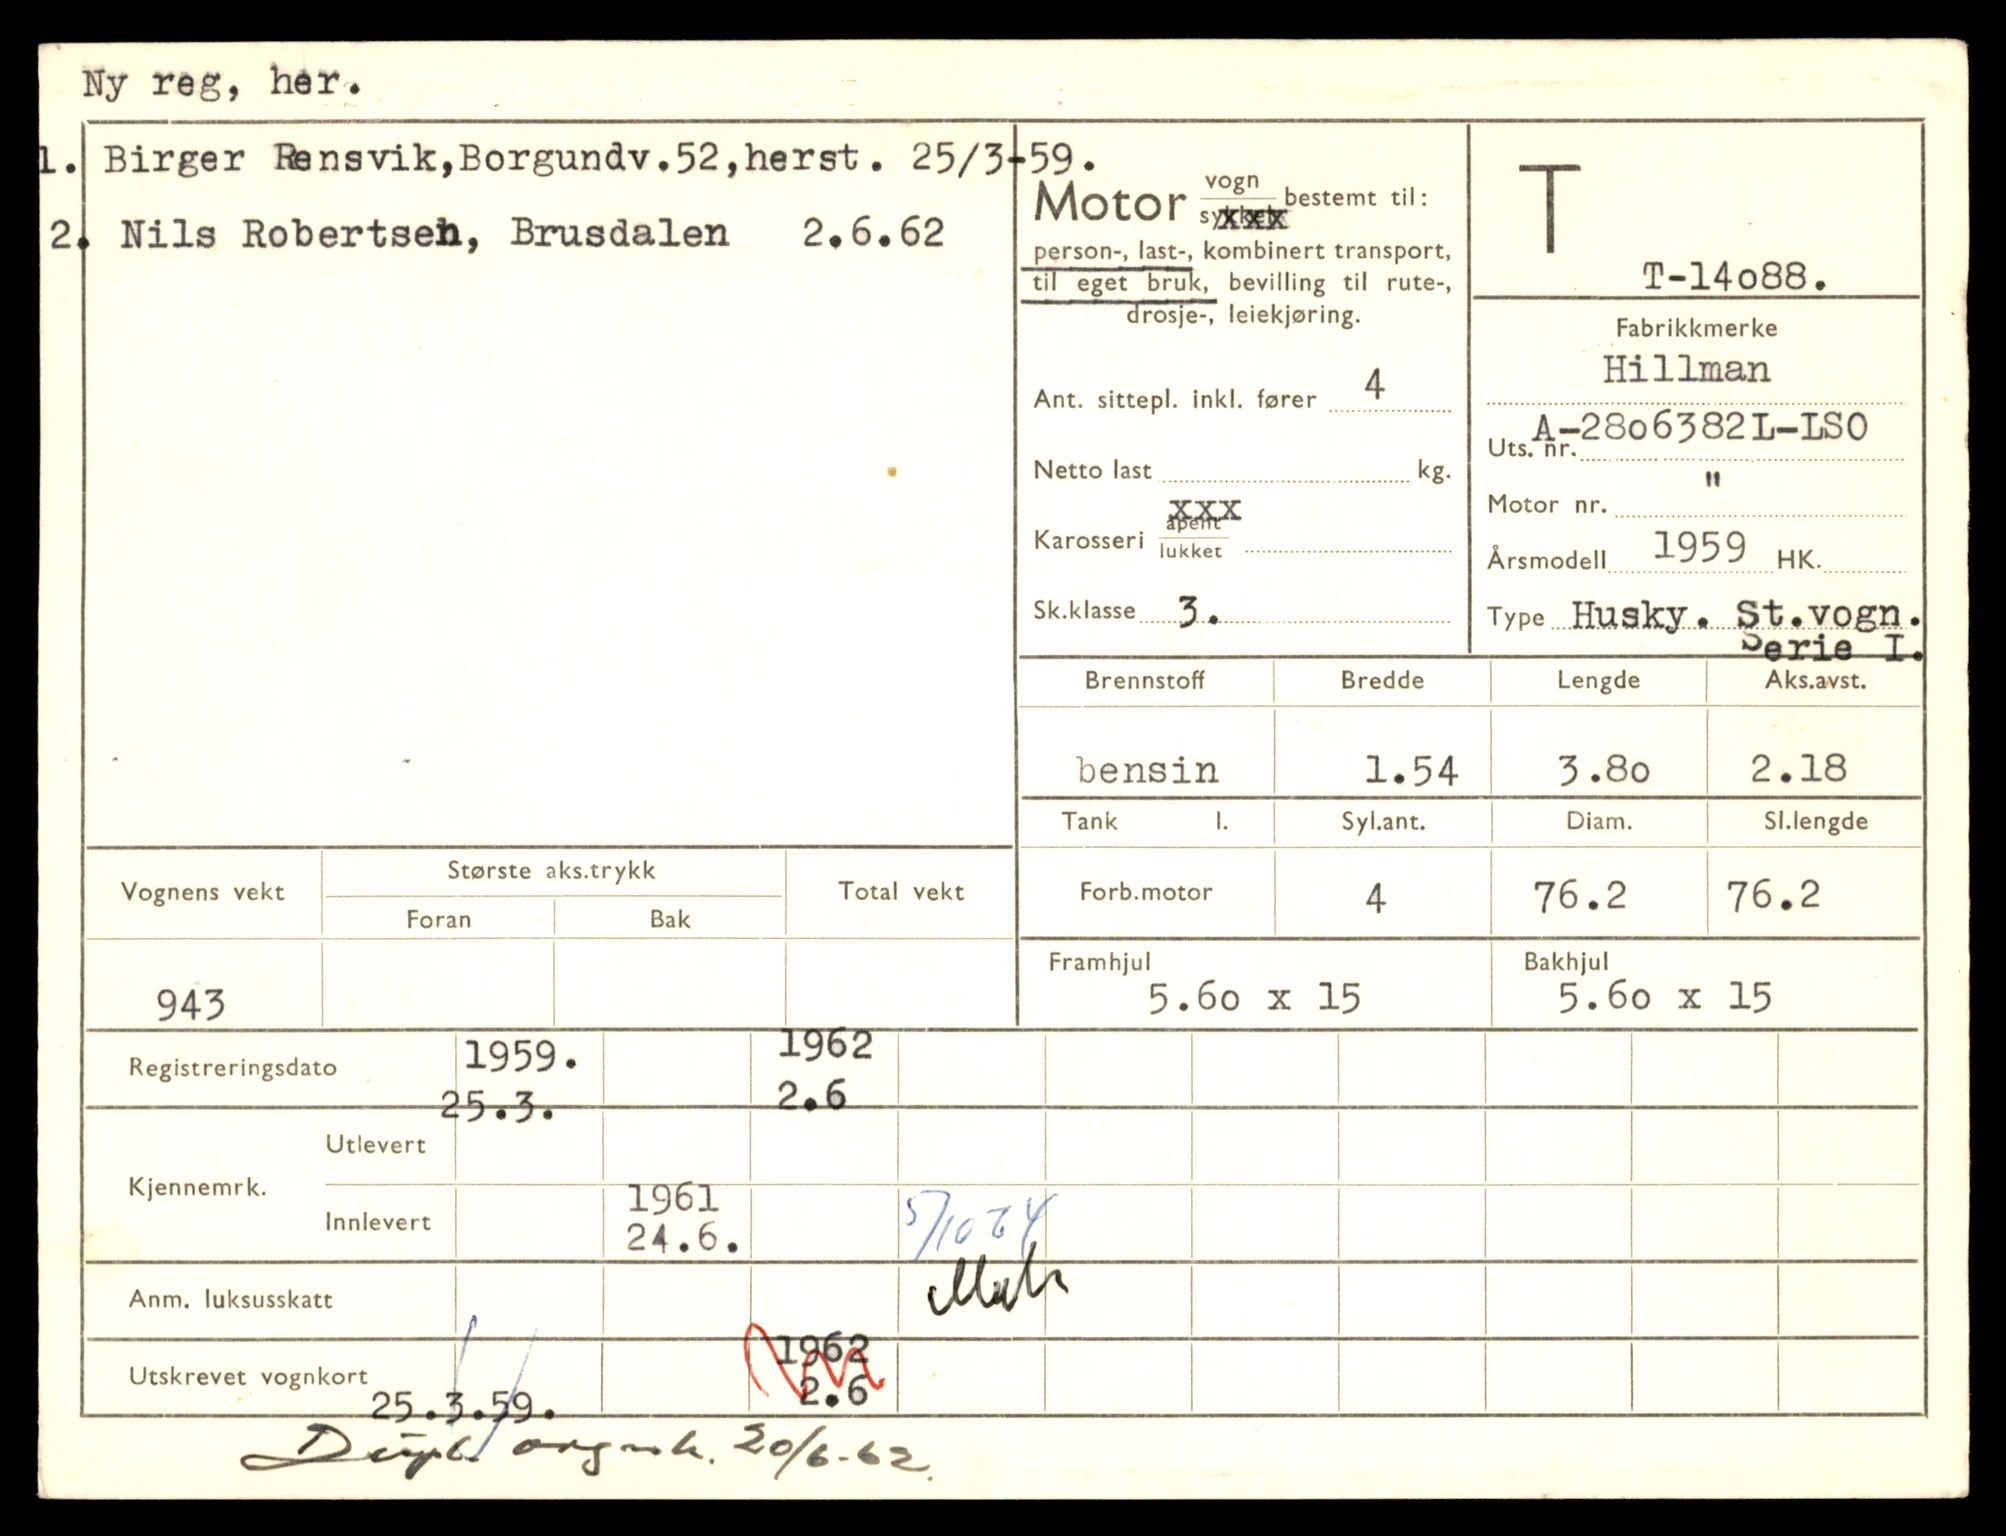 Ny reg, her.
1. Birger Rensvik,Borgundv.52,herst. 25/3-59.
2. Nils Robertsen, Brusdalen 2.6.62
Motor vogn bestemt til:
sykkel xxx
person-, last-, kombinert transport,
til eget bruk, bevilling til rute-,
drosje-, leiekjøring.
Ant. sittepl. inkl. fører 4
Netto last kg.
xxx
Karosseri åpent
lukket
Sk.klasse 3.
T
T-14o88.
Fabrikkmerke
Hillman
Uts. nr. A-28o6382L-LSO
Motor nr. "
Årsmodell 1959 HK.
Type Husky. St.vogn.
Serie I.
Brennstoff Bredde Lengde Aks.avst.
bensin 1.54 3.8o 2.18
Tank l. Syl.ant. Diam. Sl.lengde
Forb.motor 4 76.2 76.2
Framhjul Bakhjul
5.6o x 15 5.6o x 15
Vognens vekt Største aks.trykk Total vekt
Foran Bak
943
Registreringsdato 1959. 1962
25.3. 2.6
Kjennemrk. Utlevert
Innlevert 1961
24.6. 5/10 64
Anm. luksusskatt
Utskrevet vognkort 1962
25.3.59. 2.6
Dupl. vognk. 20/6-62.